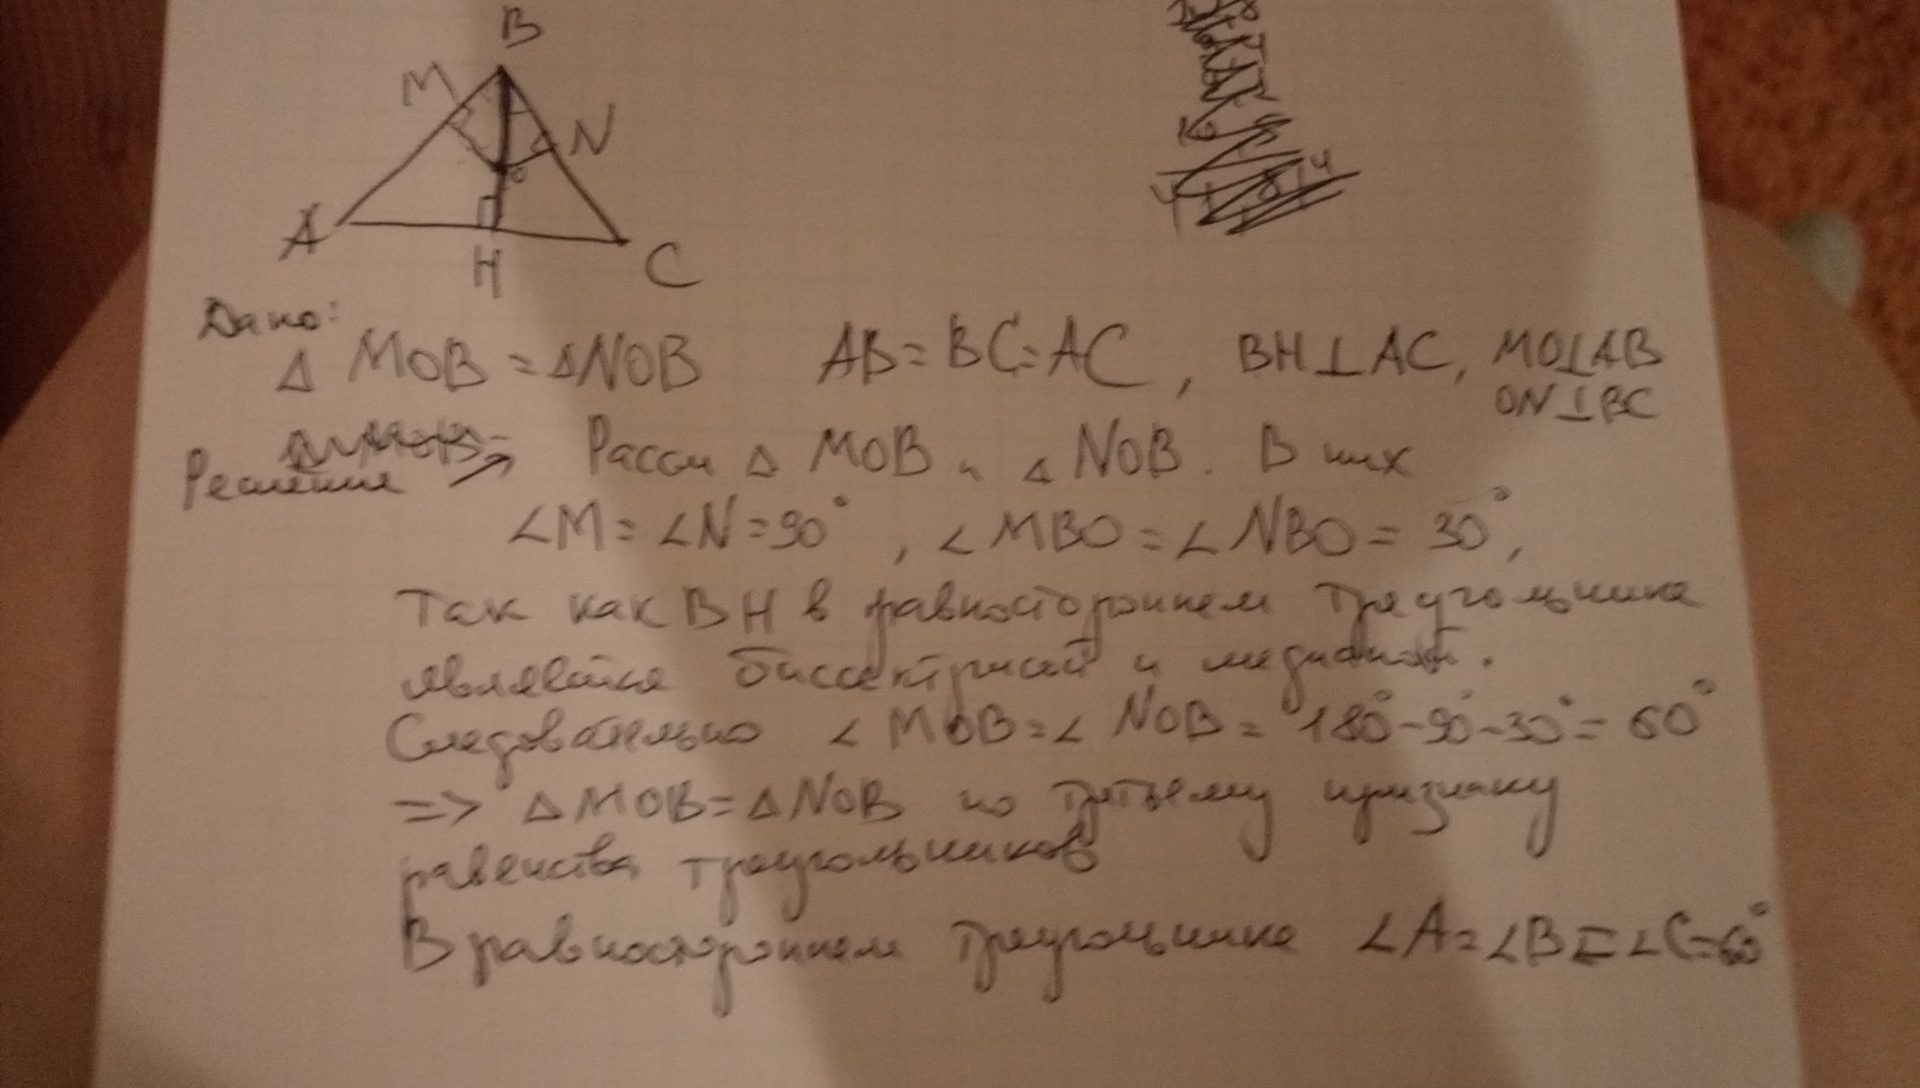 B
M
N
O
A
H
C
Дано:
Δ MOB = ΔNOB AB = BC = AC, BH⊥AC, MO⊥AB
ON⊥BC
Решение → Рассм Δ MOB и Δ NOB. В них
∠M = ∠N = 90°, ∠MBO = ∠NBO = 30°,
Так как BH в равностороннем треугольнике
является биссектрисой и медианой.
Следовательно ∠MOB = ∠NOB = 180°-90°-30° = 60°
=> ΔMOB = ΔNOB по третьему признаку
равенства треугольников
В равностороннем треугольнике ∠A = ∠B = ∠C = 60°